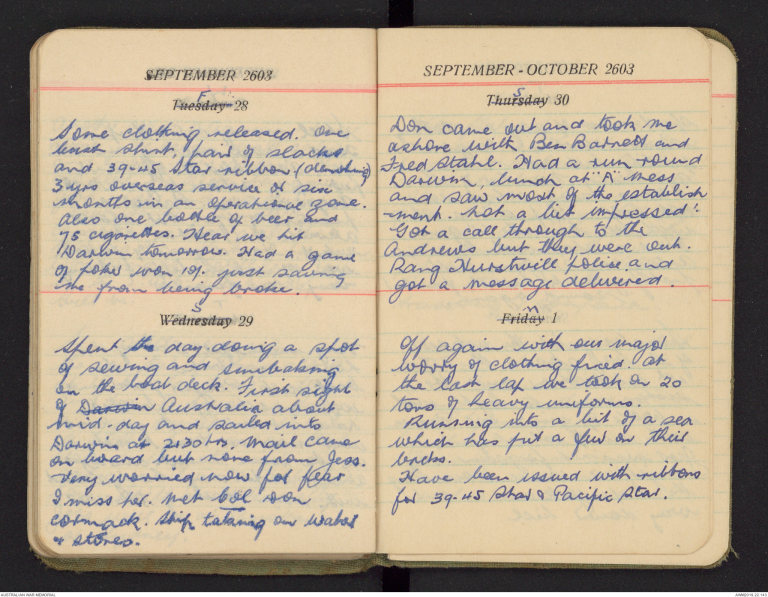 SEPTEMBER 2603
F
Tuesday 28
Some clothing released. One
bush shirt, pair of slacks
and 39-45 Star ribbon. (denoting)
3 yrs overseas service or six
months in an operational zone.
Also one bottle of beer and
75 cigarettes. Hear we hit
Darwin tomorrow. Had a game
of poker won 10/. just saving
me from being broke.
S
Wednesday 29
Spent the day doing a spot
of sewing and sunbaking
on the boat deck. First sight
of Darwin Australia about
mid-day and sailed into
Darwin at 2130 hrs. Mail came
on board but none from Jess.
Very worried now for fear
I miss her. Met Col Don
Cormack. Ship taking on water
& stores.
SEPTEMBER - OCTOBER 2603
S
Thursday 30
Don came out and took me
ashore with Ben Barnett and
Fred Stahl. Had a run round
Darwin, lunch at "A" mess
and saw most of the establish
-ment. Not a bit impressed!
Got a call through to the
Andrews but they were out.
Rang Hurstville police and
got a message delivered.
M
Friday 1
Off again with our major
worry of clothing fixed. At
the last lap we took on 20
tons of heavy uniforms.
Running into a bit of a sea
which has put a few on their
backs.
Have been issued with ribbons
for 39-45 Star & Pacific Star.
AUSTRALIAN WAR MEMORIAL